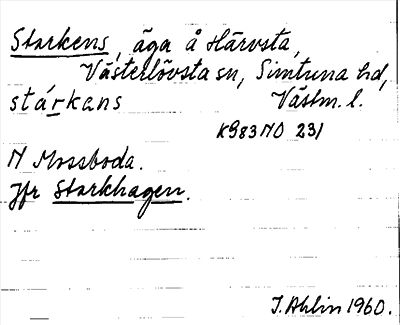 Starkens, äga å Härvsta,
Västerlövsta sn, Simtuna hd,
stárkans Västm. l.
K983NO 231
N Mossboda.
Jfr Starkhagen.
I. Ahlin 1960.